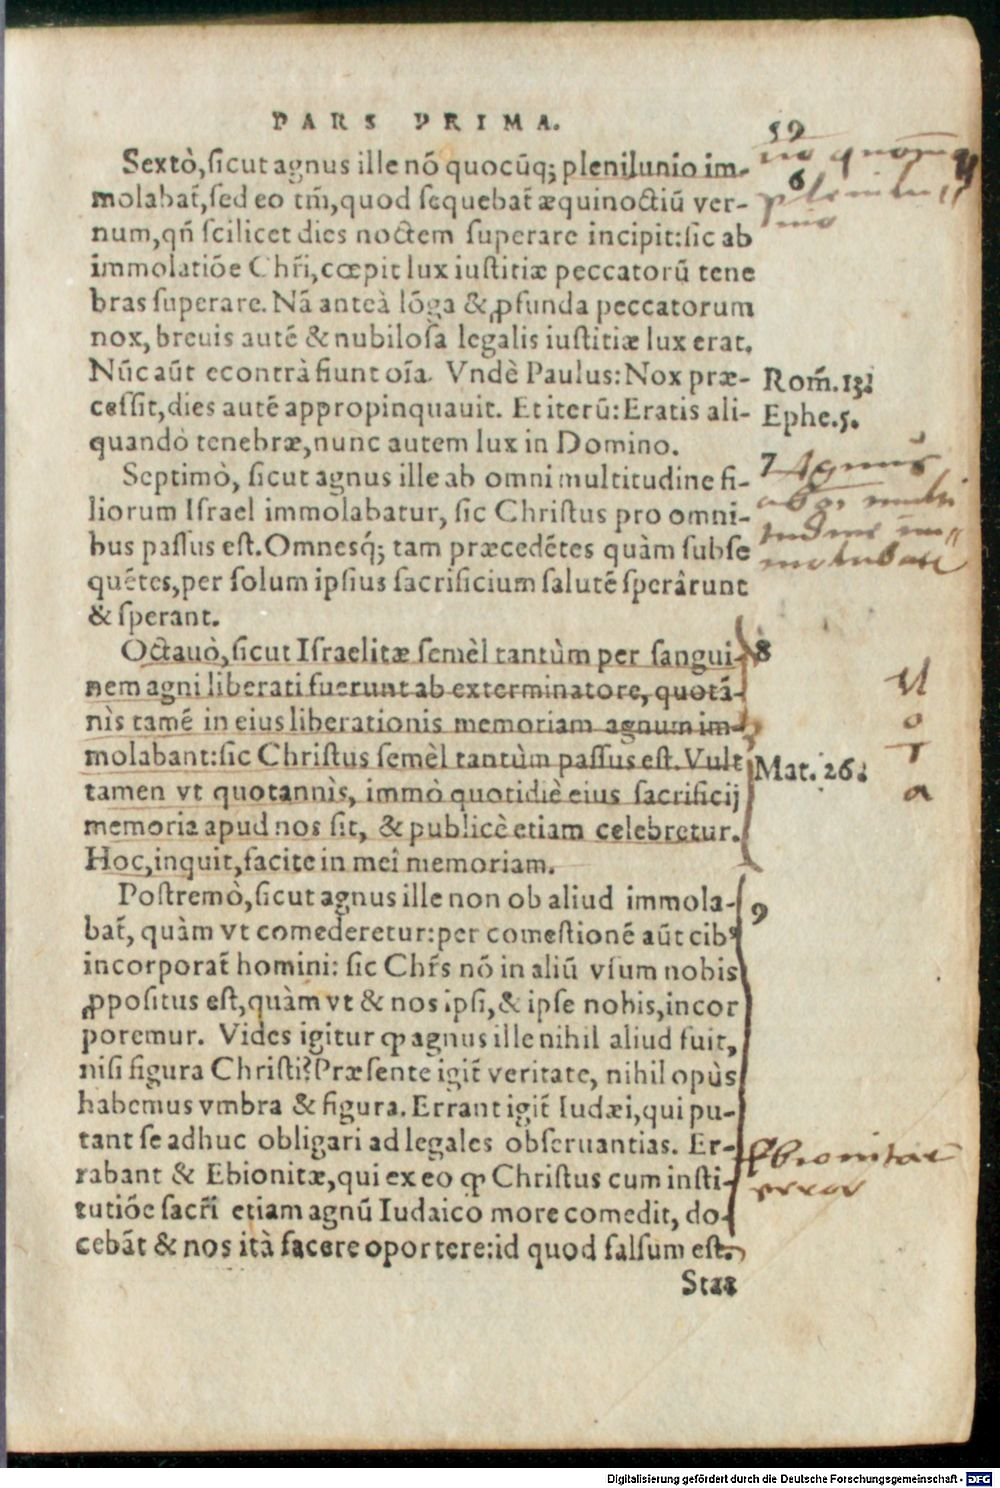 PARS PRIMA. 59
Sextò, sicut agnus ille nō quocūq; plenilunio im-
molabat̃, sed eo tm̃, quod sequebat̃ æquinoctiū ver-
num, qñ scilicet dies noctem superare incipit: sic ab
immolatiōe Chr̃i, cœpit lux iustitiæ peccatorū tene
bras superare. Nā anteà lōga & ꝓfunda peccatorum
nox, breuis autē & nubilosa legalis iustitiæ lux erat.
Nūc aūt econtrà fiunt oīa. Vndè Paulus: Nox præ-
cessit, dies autē appropinquauit. Et iterū: Eratis ali-
quandò tenebræ, nunc autem lux in Domino.
Septimò, sicut agnus ille ab omni multitudine fi-
liorum Israel immolabatur, sic Christus pro omni-
bus passus est. Omnesq́; tam præcedētes quàm subse
quētes, per solum ipsius sacrificium salutē sperârunt
& sperant.
Octauò, sicut Israelitæ semèl tantùm per sangui-
nem agni liberati fuerunt ab exterminatore, quotā-
nìs tamē in eius liberationis memoriam agnum im-
molabant: sic Christus semèl tantùm passus est. Vult
tamen vt quotannìs, immò quotidiè eius sacrificij
memoria apud nos sit, & publicè etiam celebretur.
Hoc, inquit, facite in mei memoriam.
Postremò, sicut agnus ille non ob aliud immola-
bat̃, quàm vt comederetur: per comestionē aūt cibꝰ
incorporat̃ homini: sic Chr̃s nō in aliū vsum nobis
ꝓpositus est, quàm vt & nos ipsi, & ipse nobis, incor
poremur. Vides igitur ꝙ agnus ille nihil aliud fuit,
nisi figura Christi? Præsente igit̃ veritate, nihil opùs
habemus vmbra & figura. Errant igit̃ Iudæi, qui pu-
tant se adhuc obligari ad legales obseruantias. Er-
rabant & Ebionitæ, qui ex eo ꝙ Christus cum insti-
tutiōe sacr̃i etiam agnū Iudaico more comedit, do-
cebāt & nos ità facere oportere: id quod falsum est.
Staa
6
Rom̃. 13.
Ephe. 5.
7 Agnus
8
Nota
Mat. 26.
9
Ebionitae
error
Digitalisierung gefördert durch die Deutsche Forschungsgemeinschaft - DFG